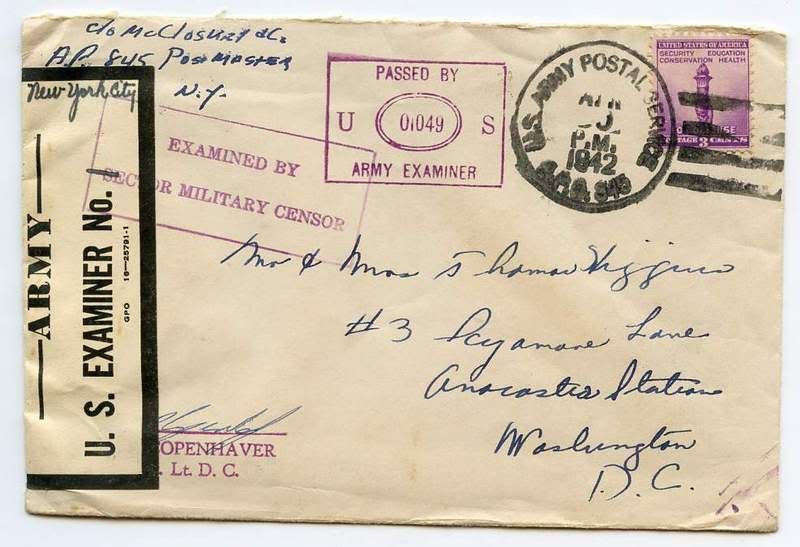 c/o McCloskey & Co.
A.P. 845 Postmaster
New York City N.Y.
PASSED BY
U 01049 S
ARMY EXAMINER
EXAMINED BY
SECTOR MILITARY CENSOR
U.S. ARMY POSTAL SERVICE
APR
P.M.
1942
A.P.O. 845
UNITED STATES OF AMERICA
SECURITY EDUCATION
CONSERVATION HEALTH
POSTAGE 3 CENTS
ARMY
U. S. EXAMINER No.
GPO 16—25791-1
Mr & Mrs Thomas Higgins
#3 Sycamore Lane
Anacostia Station
Washington
D.C.
OPENHAVER
. Lt. D. C.